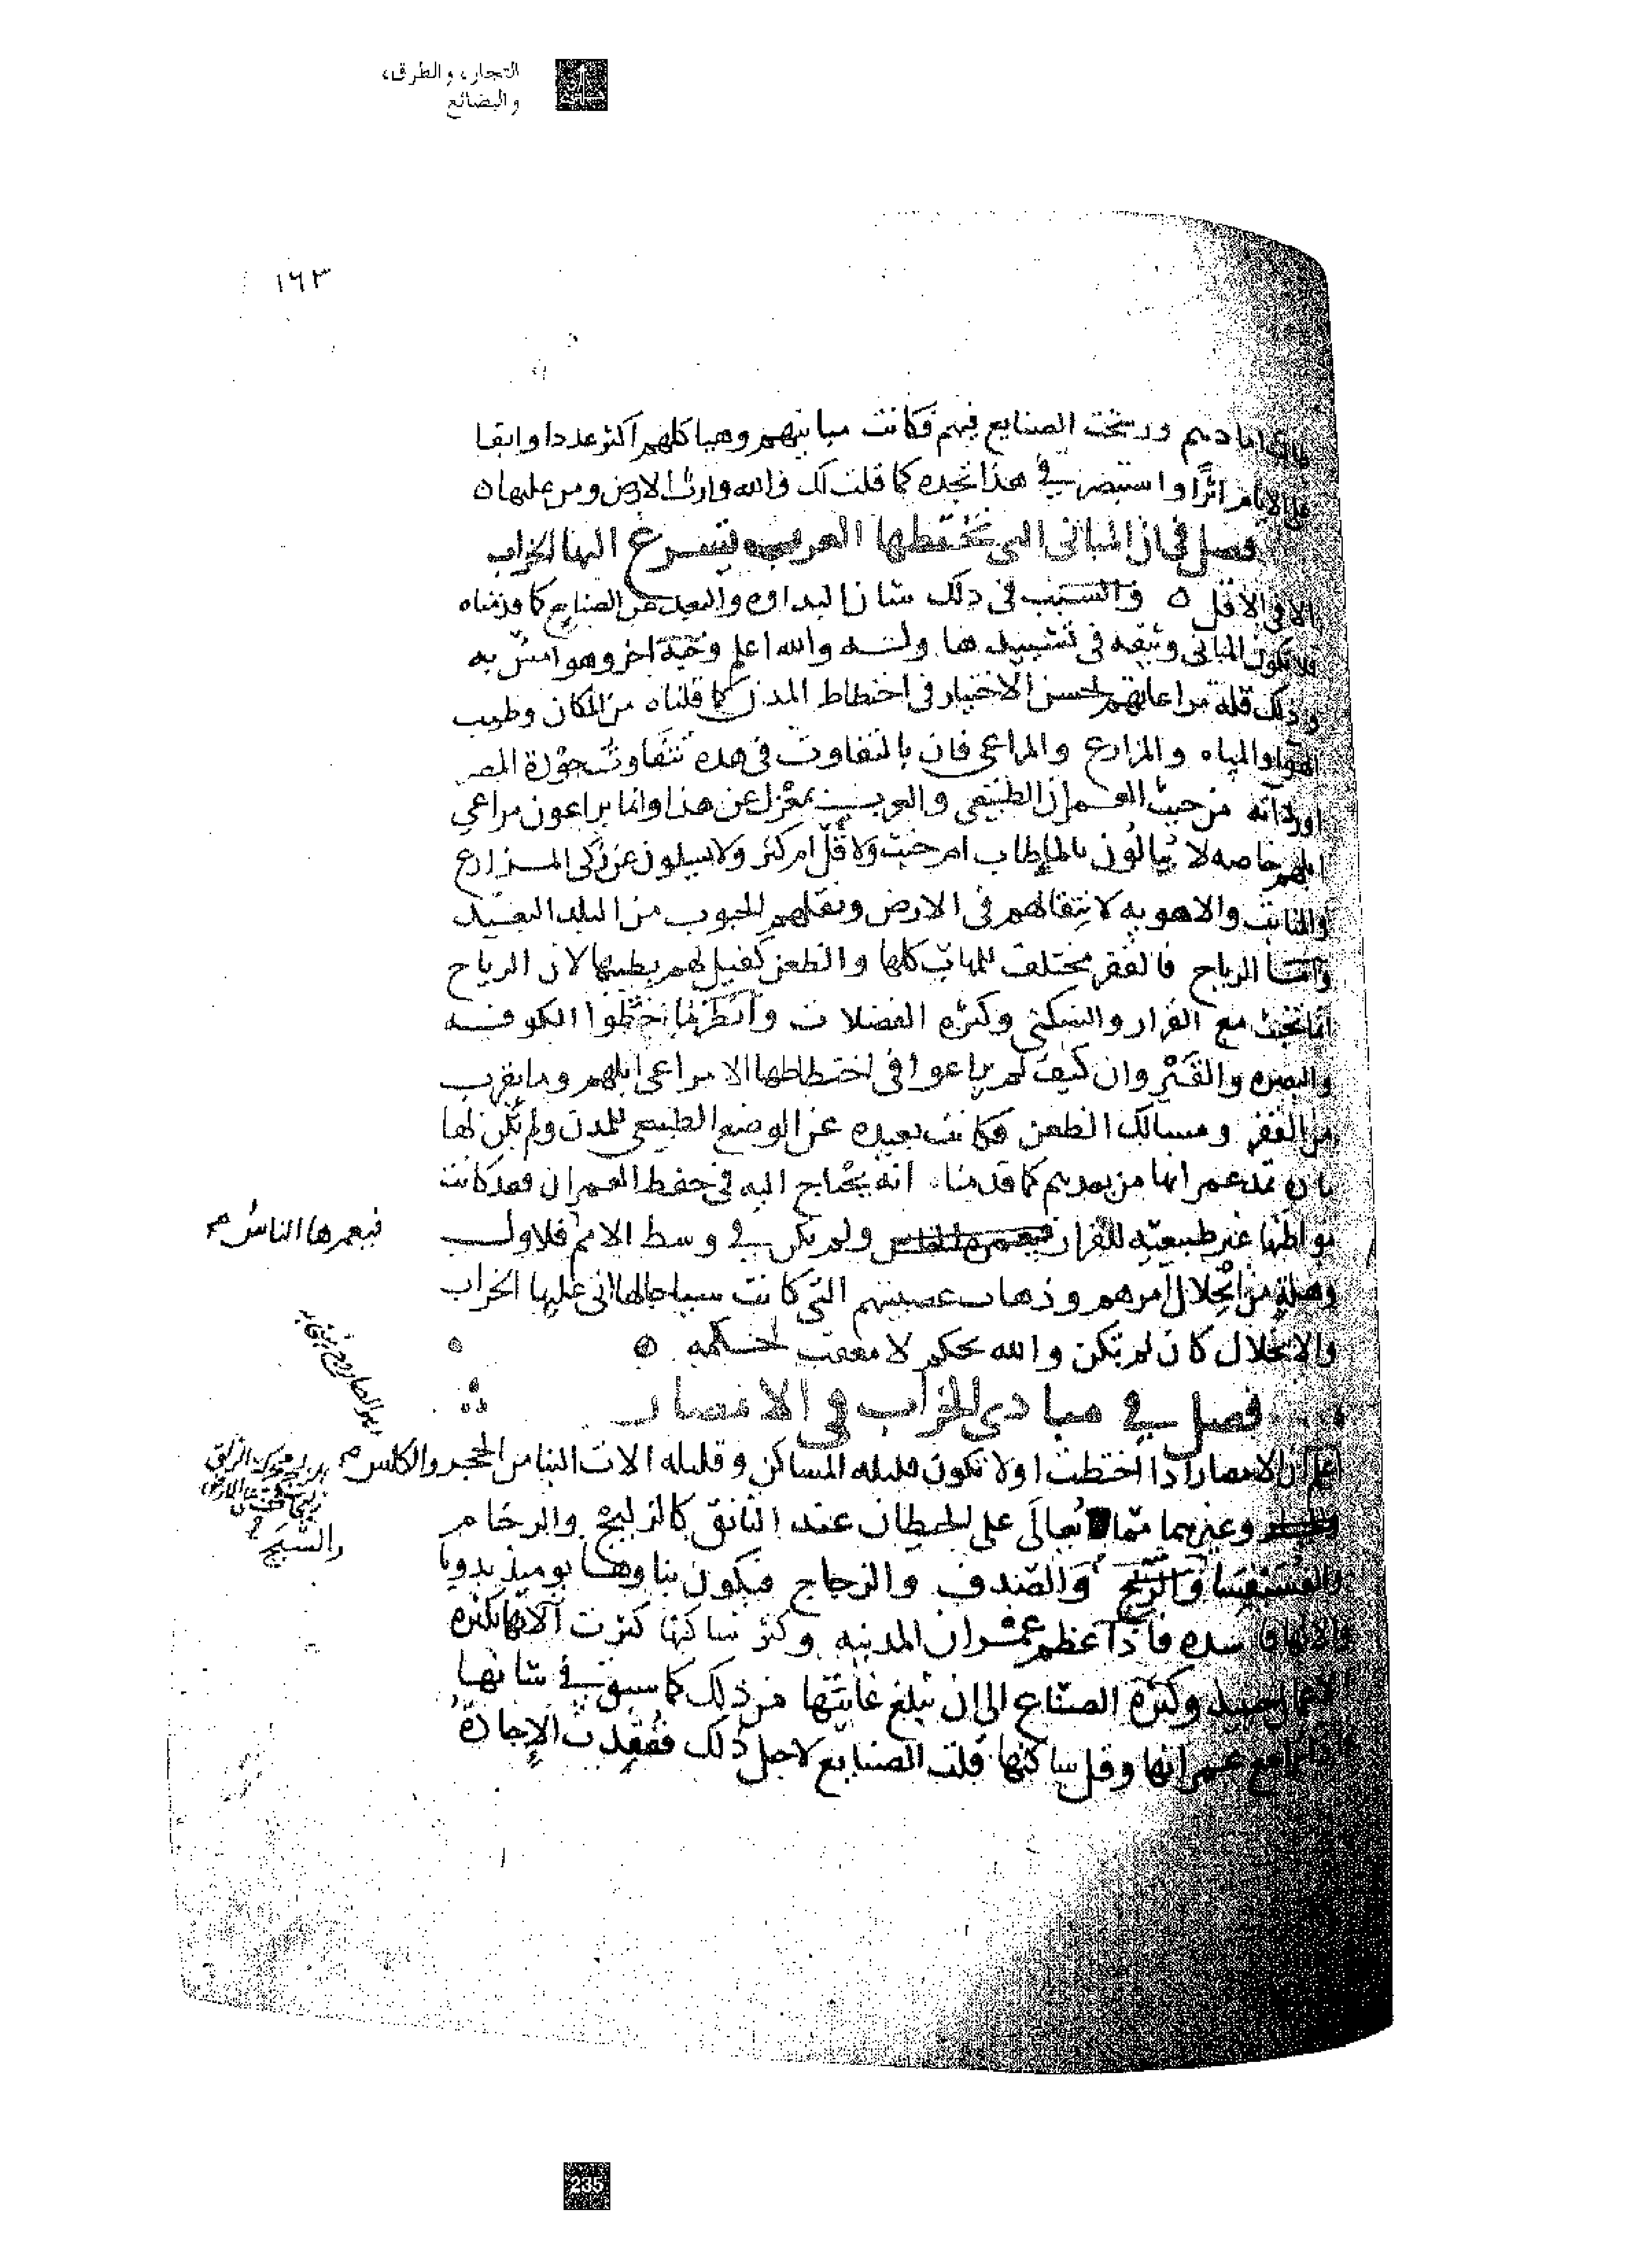 التجار، والطرق،
والبضائع
١٦٣
امادهم ورسخت الصنايع فيهم فكانت مبانيهم وهياكلهم اكثر عددا وابقا
على الايام اثرًا واستبصر في هذا تجده كما قلت لك والله وارث الارض ومن عليها ٥
فصل في ان المباني التي تختطها العرب يسرع اليها الخراب
الا في الاقل ٥ والسبب في ذلك شان البداوه والبعد عن الصنايع كما قدمناه
فلا تكون المباني وثيقه في تشييدها وله والله اعلم وجه اخر وهو امسّ به
وذلك قلة مراعاتهم لحسن الاختيار في اختطاط المدن كما قلناه من المكان وطيب
الهوا والمياه والمزارع والمراعي فان بالتفاوت في هذه تتفاوت جودة المصر
ورداته من حيث العمران الطبيعي والعرب بمعزل عن هذا وانما يراعون مراعي
ابلهم خاصه لا يبالون بالماء طاب ام خبث ولا قلّ ام كثر ولا يسيلون عن زكى المزارع
والمنابت والاهويه لانتقالهم في الارض ونقلهم الحبوب من البلد البعيد
وامّا الرياح فالقفر مختلف للمهابّ كلها والظعن كفيل لهم بطيبها لان الرياح
انما تخبث مع القرار والسكنى وكثره الفضلات وانظر لما اختطوا الكوفه
والبصره والقَيْروان كيف لم يراعوا في اختطاطها الا مراعي ابلهم وما يقرب
من القفر ومسالك الظعن فكانت بعيده عن الوضع الطبيعي للمدن ولم تكن لها
مادة تمد عمرانها من بعدهم كما قدمنا انه يحتاج اليه في حفظ العمران فقد كانت
مواطنها غير طبيعيّه للقرار ولم تكن في وسط الامم فلاول
فيعمرها الناسُ صح
وهلةٍ من انحلال امرهم وذهاب عصبيتهم التي كانت سياجا لها اتى عليها الخراب
والانحلال كان لم تكن والله يحكم لا معقب لحكمه ٥
فصل في مبادي الخراب في الامصار
اعلم ان الامصار اذا اختطت اولا تكون قليله المساكن وقليله الات البنا من الحجر والكلس صح
وغيرهما ممّا يُعالَى على الحيطان عند التانق كالزليج والرخام
والسَّبَج
والفسيفسا والصّدف والزجاج فيكون بناوها يوميذ بدويا
والاتها فاسده فاذا عظم عمران المدينه وكثر ساكنها كثرت الاتها بكثره
الاعمال حينيذ وكثره الصنّاع الى ان تبلغ غايتها من ذلك كما سبق في شانها
فاذا تراجع عمرانها وقل ساكنها قلت الصنايع لاجل ذلك ففُقِدت الإجادةُ
235